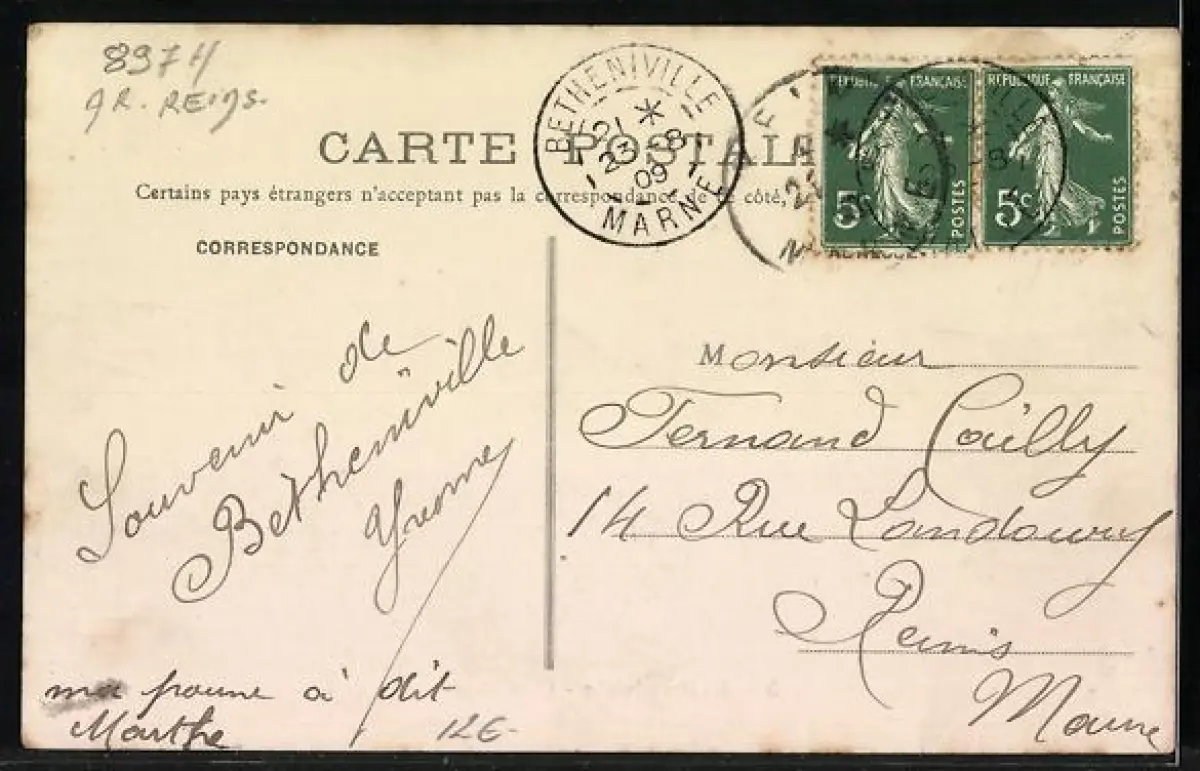 8974
AR. REIMS.
CARTE POSTALE
Certains pays étrangers n'acceptant pas la correspondance de ce côté,
BETHENIVILLE
21 *
23-8
09
MARNE
REPUBLIQUE FRANÇAISE
5
POSTES
REPUBLIQUE FRANÇAISE
5c
POSTES
CORRESPONDANCE
Souvenir de
Bétheniville
Yvonne
ma à dit
Marthe
12E-
Monsieur
Fernand Cailly
14 Rue
Reims
Marne